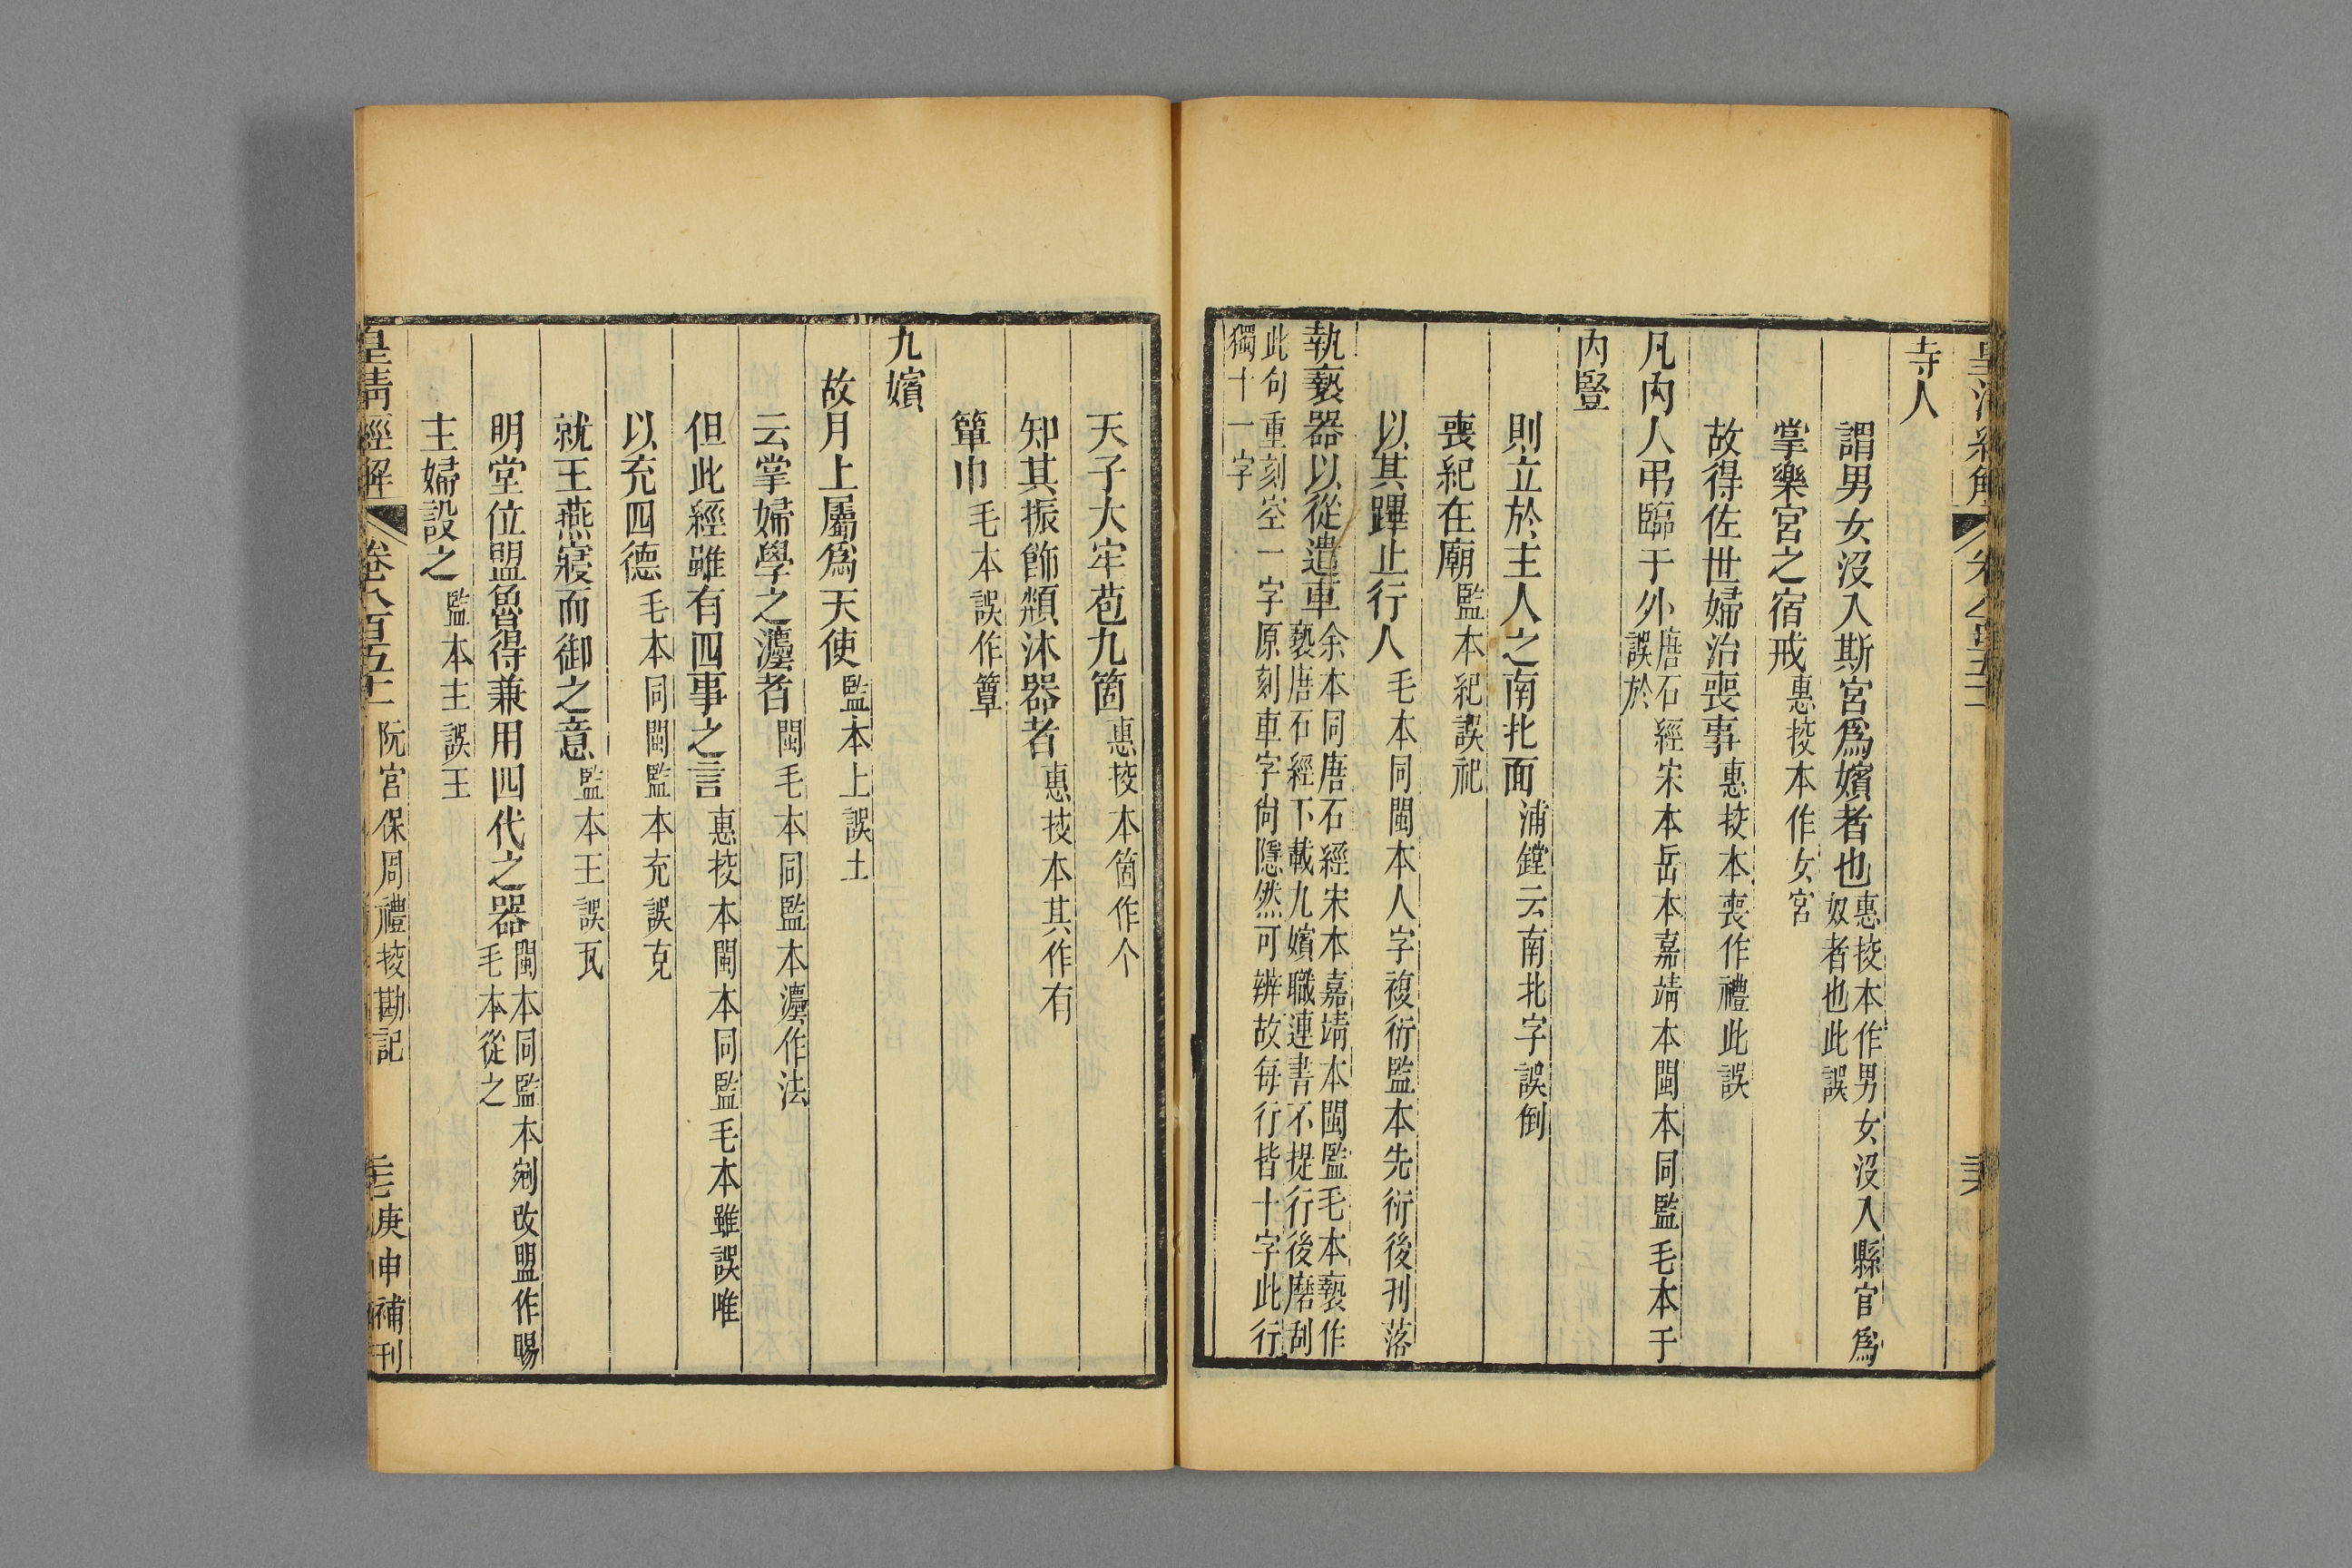 寺人
謂男女沒入斯宮爲嬪者也惠挍本作男女沒入縣官爲奴者也此誤
掌樂宮之宿戒惠挍本作女宮
故得佐世婦治喪事惠挍本喪作禮此誤
凡內人弔臨于外唐石經宋本岳本嘉靖本閩本同監毛本于誤於
內豎
則立於主人之南北面浦鏜云南北字誤倒
喪紀在廟監本紀誤祀
以其蹕止行人毛本同閩本人字複衍監本先衍後刊落
執褻器以從遣車余本同唐石經宋本嘉靖本閩監毛本褻作䙝唐石經下載九嬪職連書不提行後磨刮
此句重刻空一字原刻車字尙隱然可辨故每行皆十字此行獨十一字
天子大牢苞九箇惠挍本箇作个
知其振飾頮沐器者惠挍本其作有
簞巾毛本誤作簟
九嬪
故月上屬爲天使監本上誤土
云掌婦學之灋者閩毛本同監本灋作法
但此經雖有四事之言惠挍本閩本同監毛本雖誤唯
以充四德毛本同閩監本充誤克
就王燕寢而御之意監本王誤瓦
明堂位盟魯得兼用四代之器閩本同監本剜改盟作賜毛本從之
主婦設之監本主誤王
皇淸經解 卷八百五十一 阮宮保周禮挍勘記 庚申補刊